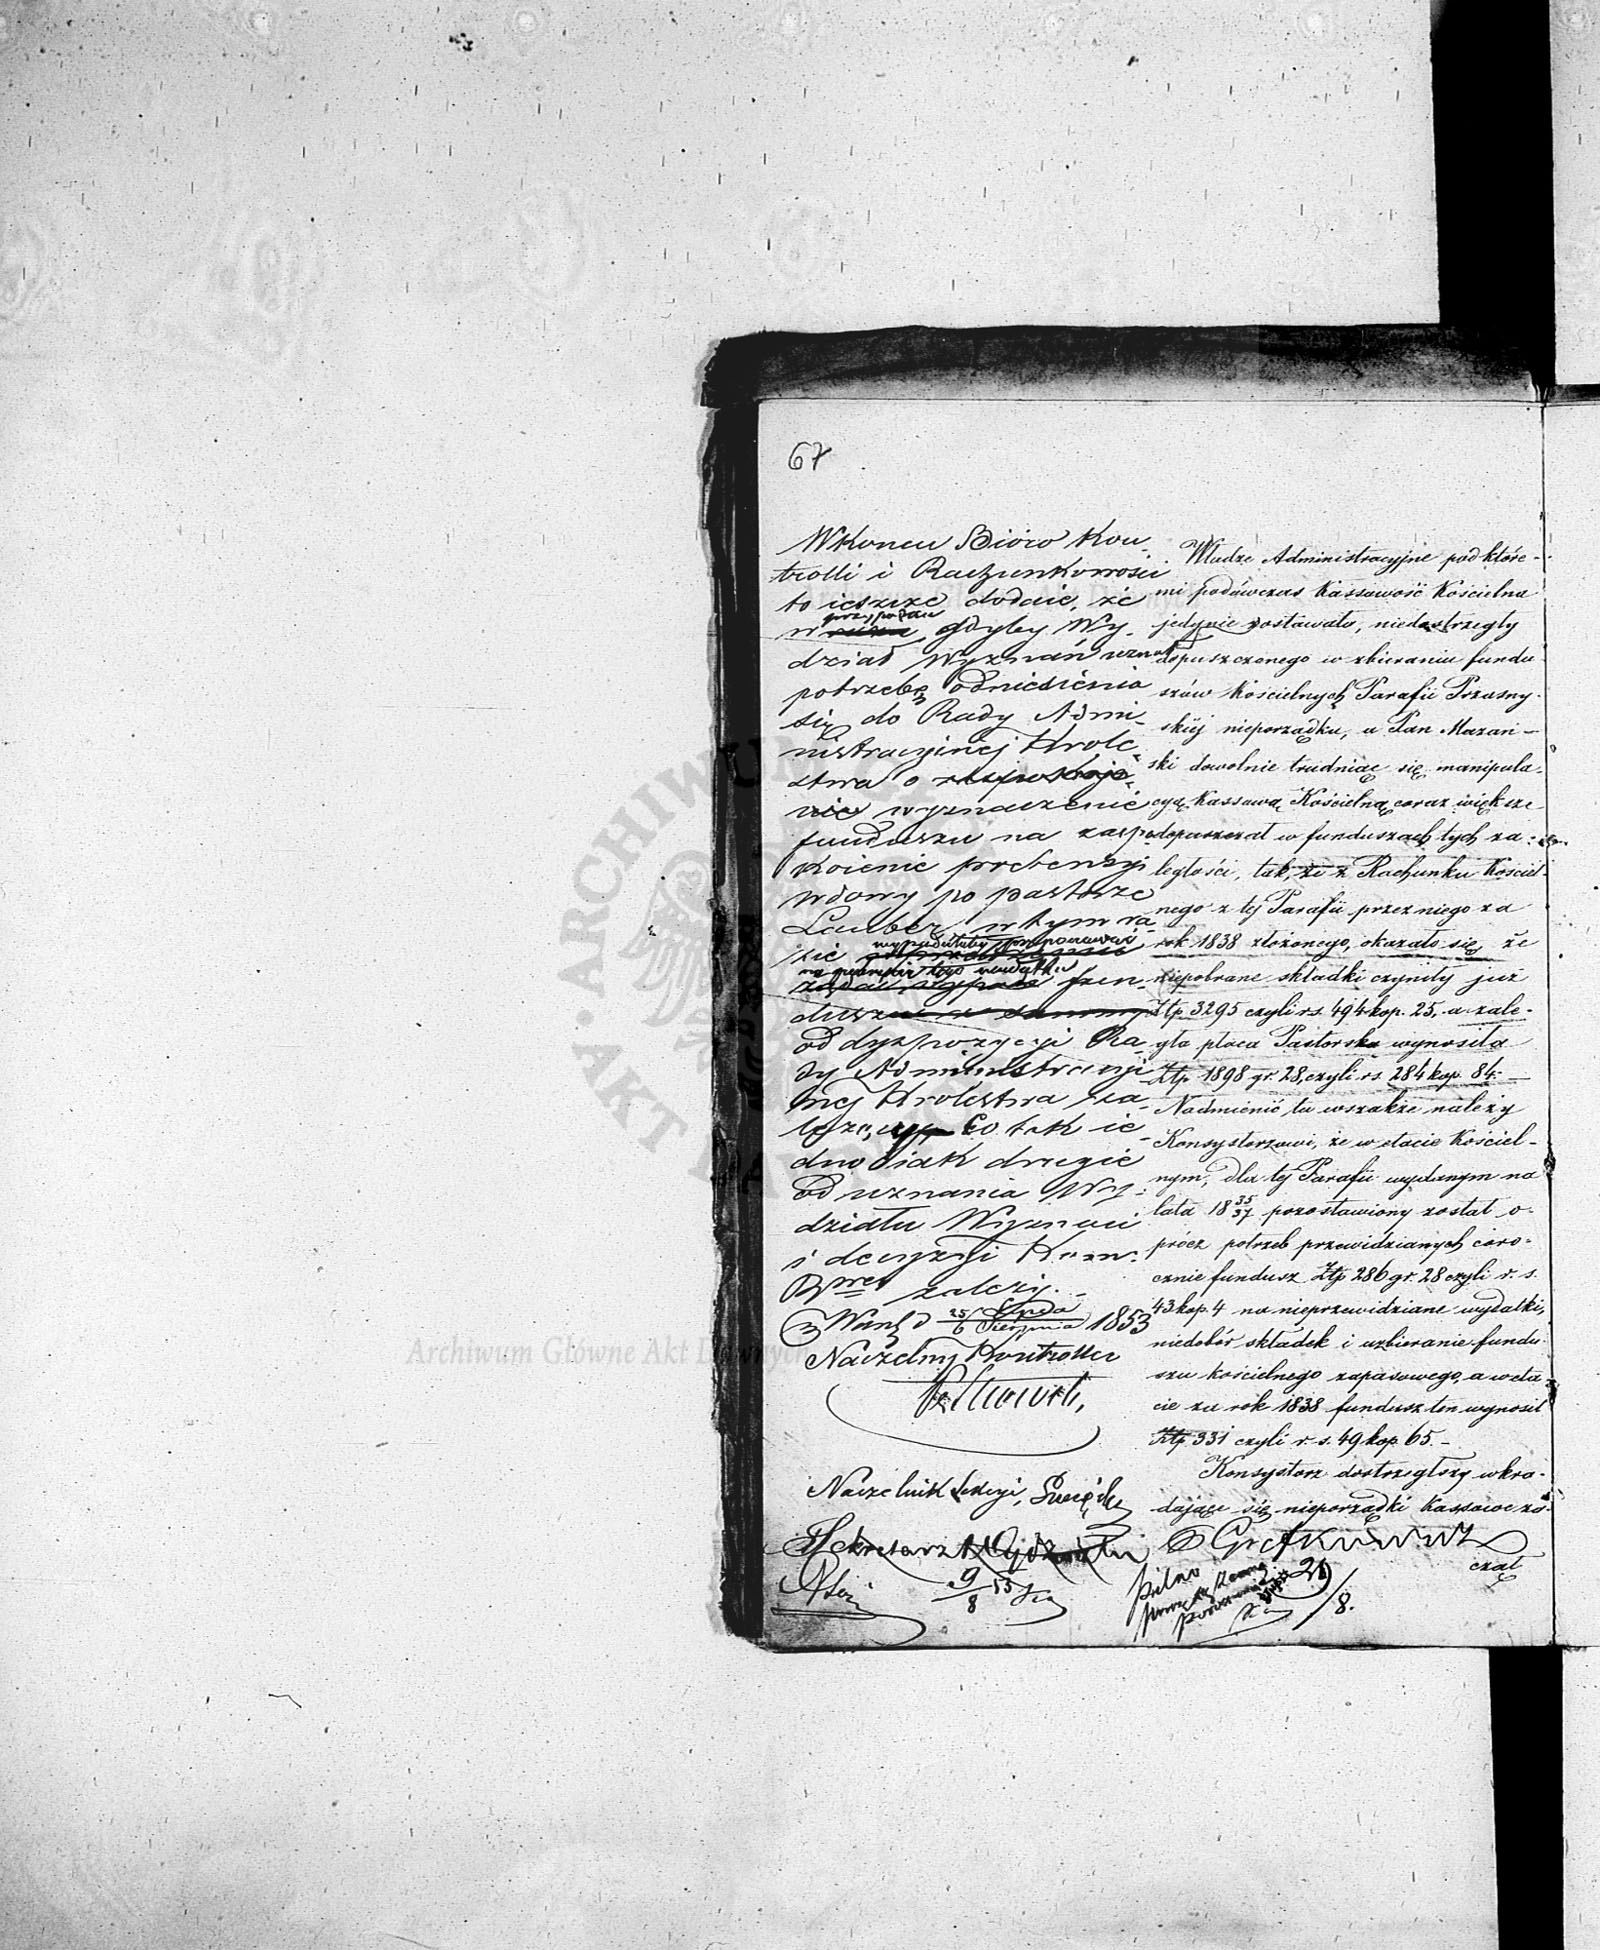 67
W Koncu Bióro Kon-
trolli i Rachunkowości
to ieszcze dodaie, że
przypadku
w razie, gdyby Wy-
dział Wyznań uznał
potrzebę odniesienia
się do Rady Admi-
nistracyinej Króle-
stwa o zaspokoje-
nie wyznaczenie
funduszu na zaspo-
koienie pretensyi
wdowy po pastorze
Lauber, w tym ra-
zie
wypadałoby proponować
na pokrycie tego wydatku
żądać wypłate fun-
duszu
od dyspozycyi Ra-
dy Administracyi-
nej Królestwa za-
leżący Co tak ie-
dno iak drugie
od uznania Wy-
działu Wyznań
i decyzyi Kom.
Rząd zależy.
Warsz d 25/6 Lipca/Sierpnia 1853
Naczelny Kontroller
Naczelnik Sekcyi,
Sekretarz
9/8 53
Władze Administracyjne pod które-
mi podówczas Kassowość Kościelna
jedynie zostawała, niedostrzegły
dopuszczonego w zbieraniu fundu-
szów Kościelnych Parafii Przasny-
skiéj nieporządku, a Pan Mazań-
ski dowolnie trudniąc się manipula-
cyą Kassową Kościelną coraz większe
dopuszczał w funduszach tych za-
ległości, tak, że z Rachunku Kościel-
nego z tej Parafii przez niego za
rok 1838 złożonego, okazało się, że
niepobrane składki czyniły już
Złp 3295 czyli rs. 494 kop. 25, a zale-
gła płaca Pastorska wynosiła
Złp 1898 gr. 28, czyli rs. 284 kop. 84.
Nadmienić tu wszakże należy
Konsystorzowi, że w etacie Kościel-
nym, dla tej Parafii wydanym na
lata 1835/37 pozostawiony został o-
prócz potrzeb przewidzianych coro-
cznie fundusz Złp 286 gr. 28 czyli r. s.
43 kop. 4 na nieprzewidziane wydatki,
niedobór składek i uzbieranie fundu-
szu kościelnego zapasowego, a w eta-
cie za rok 1838 fundusz ten wynosił
Złp 331 czyli r. s. 49 kop. 65.
Konsystorz dostrzegłszy wkra-
dające się nieporządki Kassowe za-
czął
pilno
21/8.
ARCHIWUM
AKT
Archiwum Główne Akt Dawnych